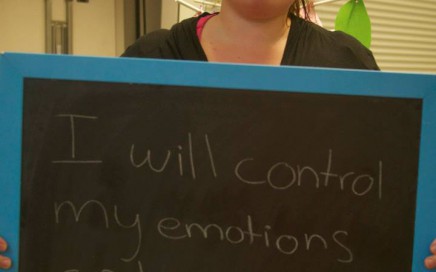 I will control
my emotions